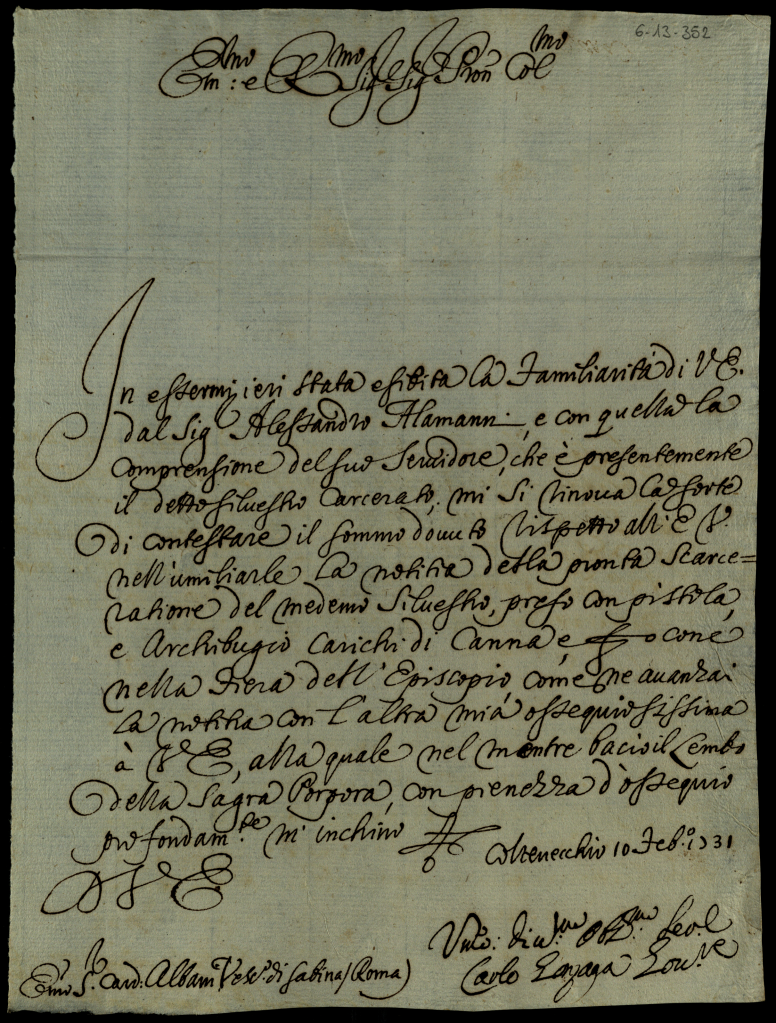 6-13-352
Em:mo e R:mo Sig Sig Pron Col:mo
In essermi ieri stata esibita la Familiarità di V.E.
dal Sig Alessandro Alamanni, e con quella la
comprensione del suo Servidore, che è presentemente
il detto Silvestro Carcerato, mi si rinova la sorte
di contestare il sommo dovuto rispetto all' E V.
nell'umiliarle la notitia della pronta Scarce=
ratione del medemo Silvestro, preso con pistola,
e Archibugio carichi di Canna, e
nella Fiera dell'Episcopio, come ne avanzai
la notitia con l'altra mia ossequiosissima
à V. E, alla quale nel mentre bacio il Lembo
della Sagra Porpora, con pienezza d'ossequio
profondam.te m' inchino
Collevecchio 10 Feb.o 1731
D V. E
Um:o Div.mo Obl.mo Ser.
Emo S. Card: Albani Vesc.o di Sabina (Roma)
Carlo Gov.re